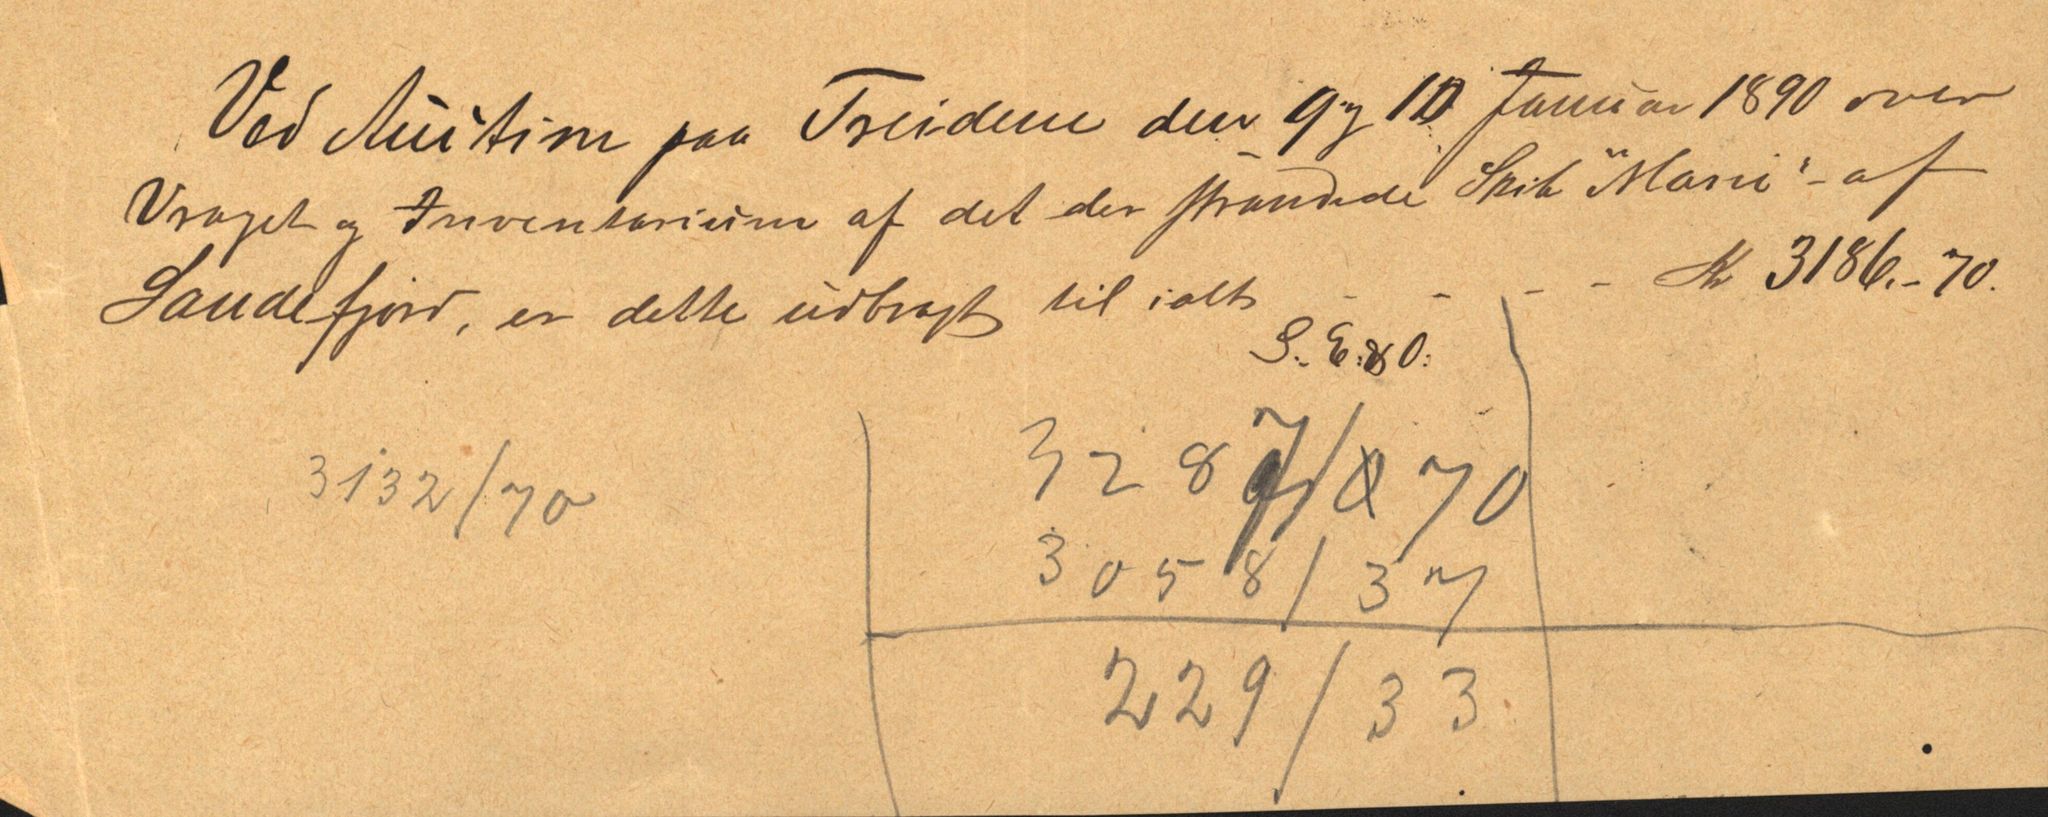 Ved Auction paa Treidene den 9 og 10 Januar 1890 over
Vraget og Inventarium af det der strandede Skib "Marie" af
Sandefjord, er dette udbragt til ialt - - - - Kr 3186.-70.
S. E. & O.
3287/70
3132/70
3058/37
229/33